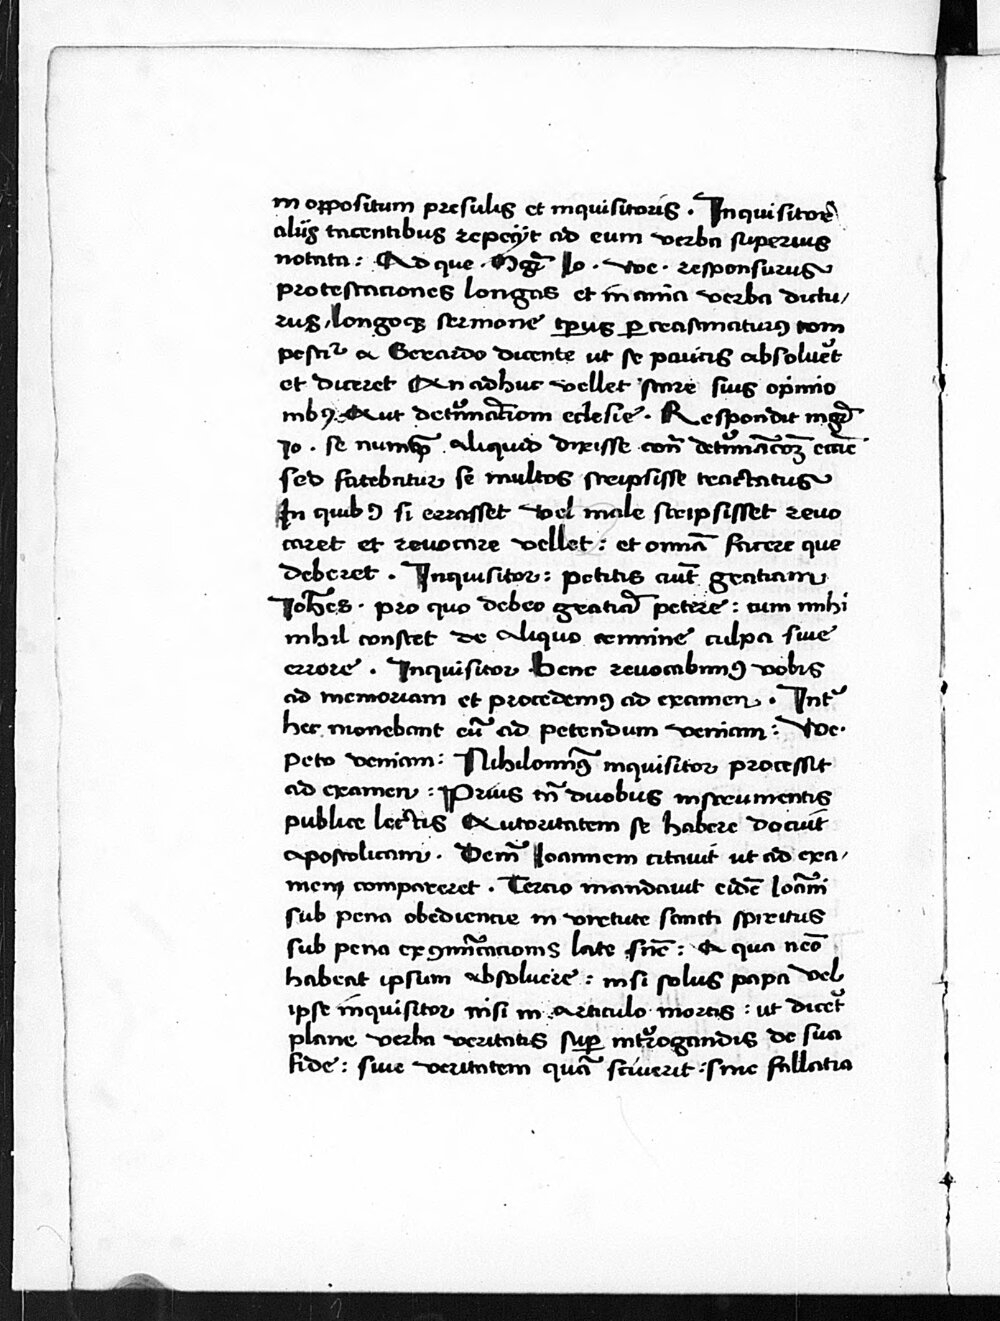 in oppositum presulis et inquisitoris . Inquisitor̄
aliis tacentibus repeciit ad eum verba superius
notata : Ad que . Mgr̄ Io . we . responsurus
protestaciones longas et in ania verba dictu/
rus / longoq; sermone tp̄us ꝑ
pestr a Gerardo dicente ut se paucis absoluēt
et diceret An adhuc vellet stare suis opinio
nibꝰ Aut det'minac̄iom eclesie . Respondit mgr̄
Io . se numq̄ꝫ aliquid dixisse con̄ det'minac̄oꝫ eccīe
sed fatebatur se multos scripsisse tractatus
In quibꝰ si errasset vel male scripsisset revo
caret et revocare vellet : et omnīa facere que
deberet . Inquisitor : petitis aūt gratiam
Ioh̄es . pro quo debeo gratiā petere : cum mihi
nihil constet de aliquo crimine culpa sive
errore . Inquisitor Bene revocabimꝰ vobis
ad memoriam et procedemꝰ ad examen . Int'
hec monebant eū ad petendum veniam : We .
peto veniam : Nihilominꝰ inquisitor processit
ad examen : Prius tn̄ duobus instrumentis
publice lectis Autoritatem se habere docuit
apostolicam . Dein̄ Ioannem citavit ut ad exa/
men compareret . Tercio mandavit eidē Ioān̄i
sub pena obediencie in virtute sancti spiritus
sub pena exꝯmūicacionis late sn̄e : A qua neō
habeat ipsum absoluere : nisi solus papa vel
ipse inquisitor nisi in articulo mortis : ut dicet'
plane verba veritatis suꝑ int'rogandis de sua
fide : sive veritatem quā sciverit : sine fallatia